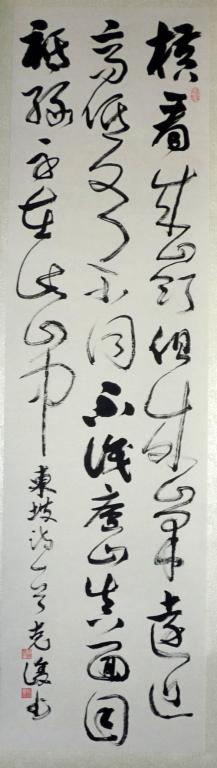 橫看成嶺側成峰遠近
高低各不同不識廬山真面目
祇緣身在此山中
東坡詩一首